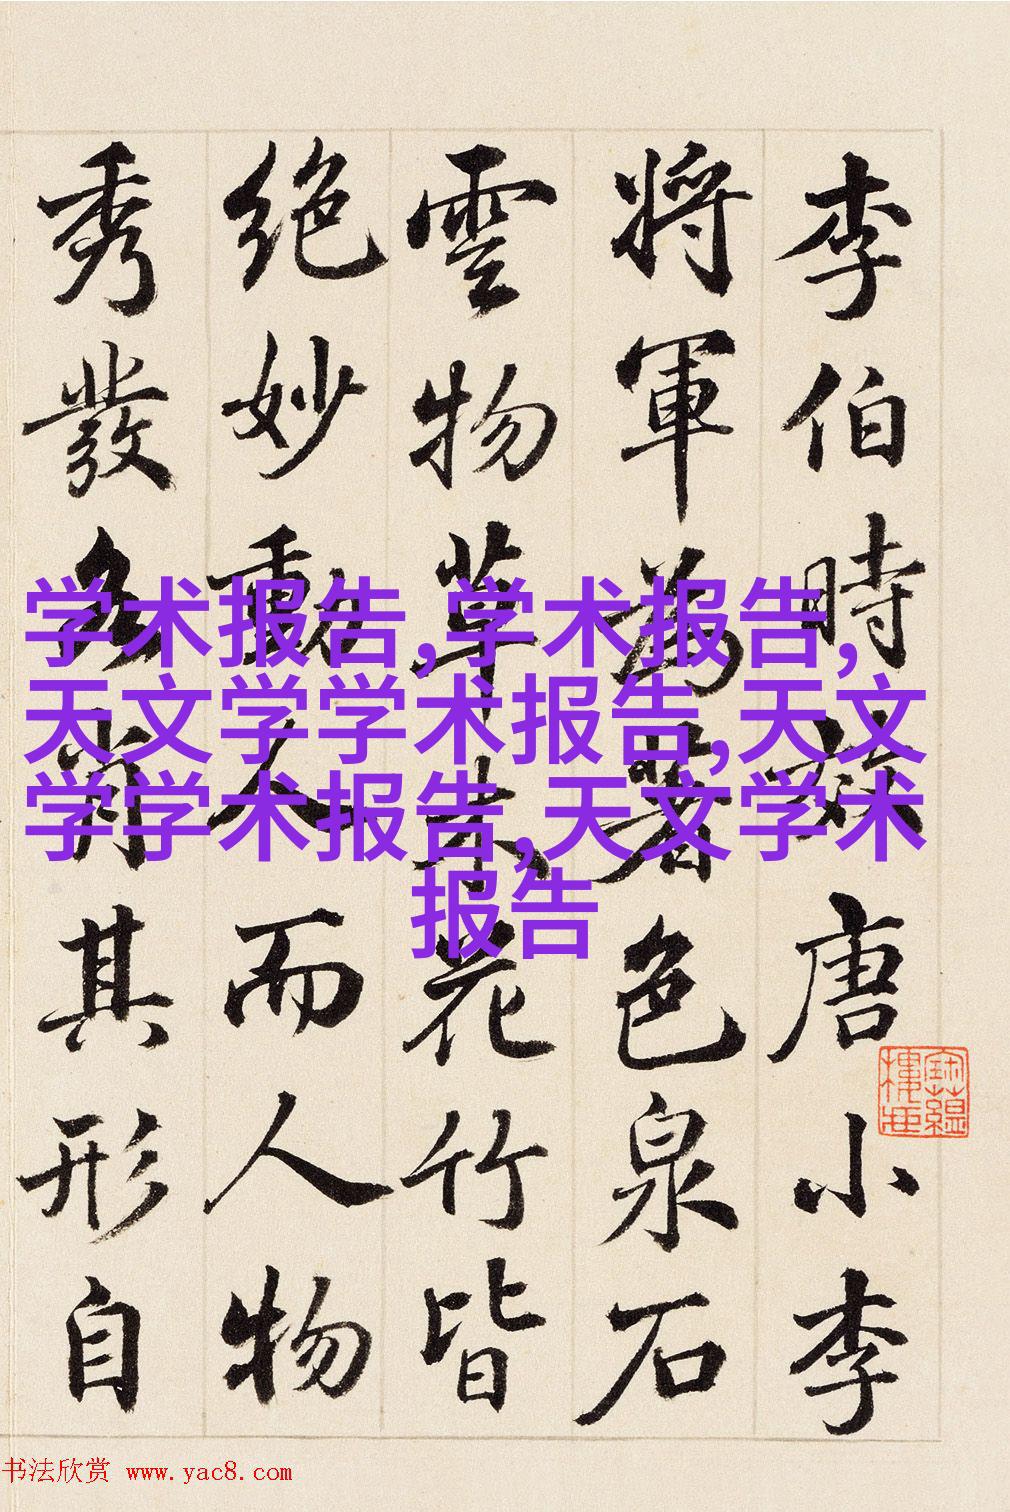 李伯時效唐小李
将軍為著色泉石
雲物草木花竹皆
絶妙動人而人物
秀發各肖其形自
学术报告,学术报告,
天文学学术报告,天文
学学术报告,天文学术
报告
书法欣赏 www.yac8.com